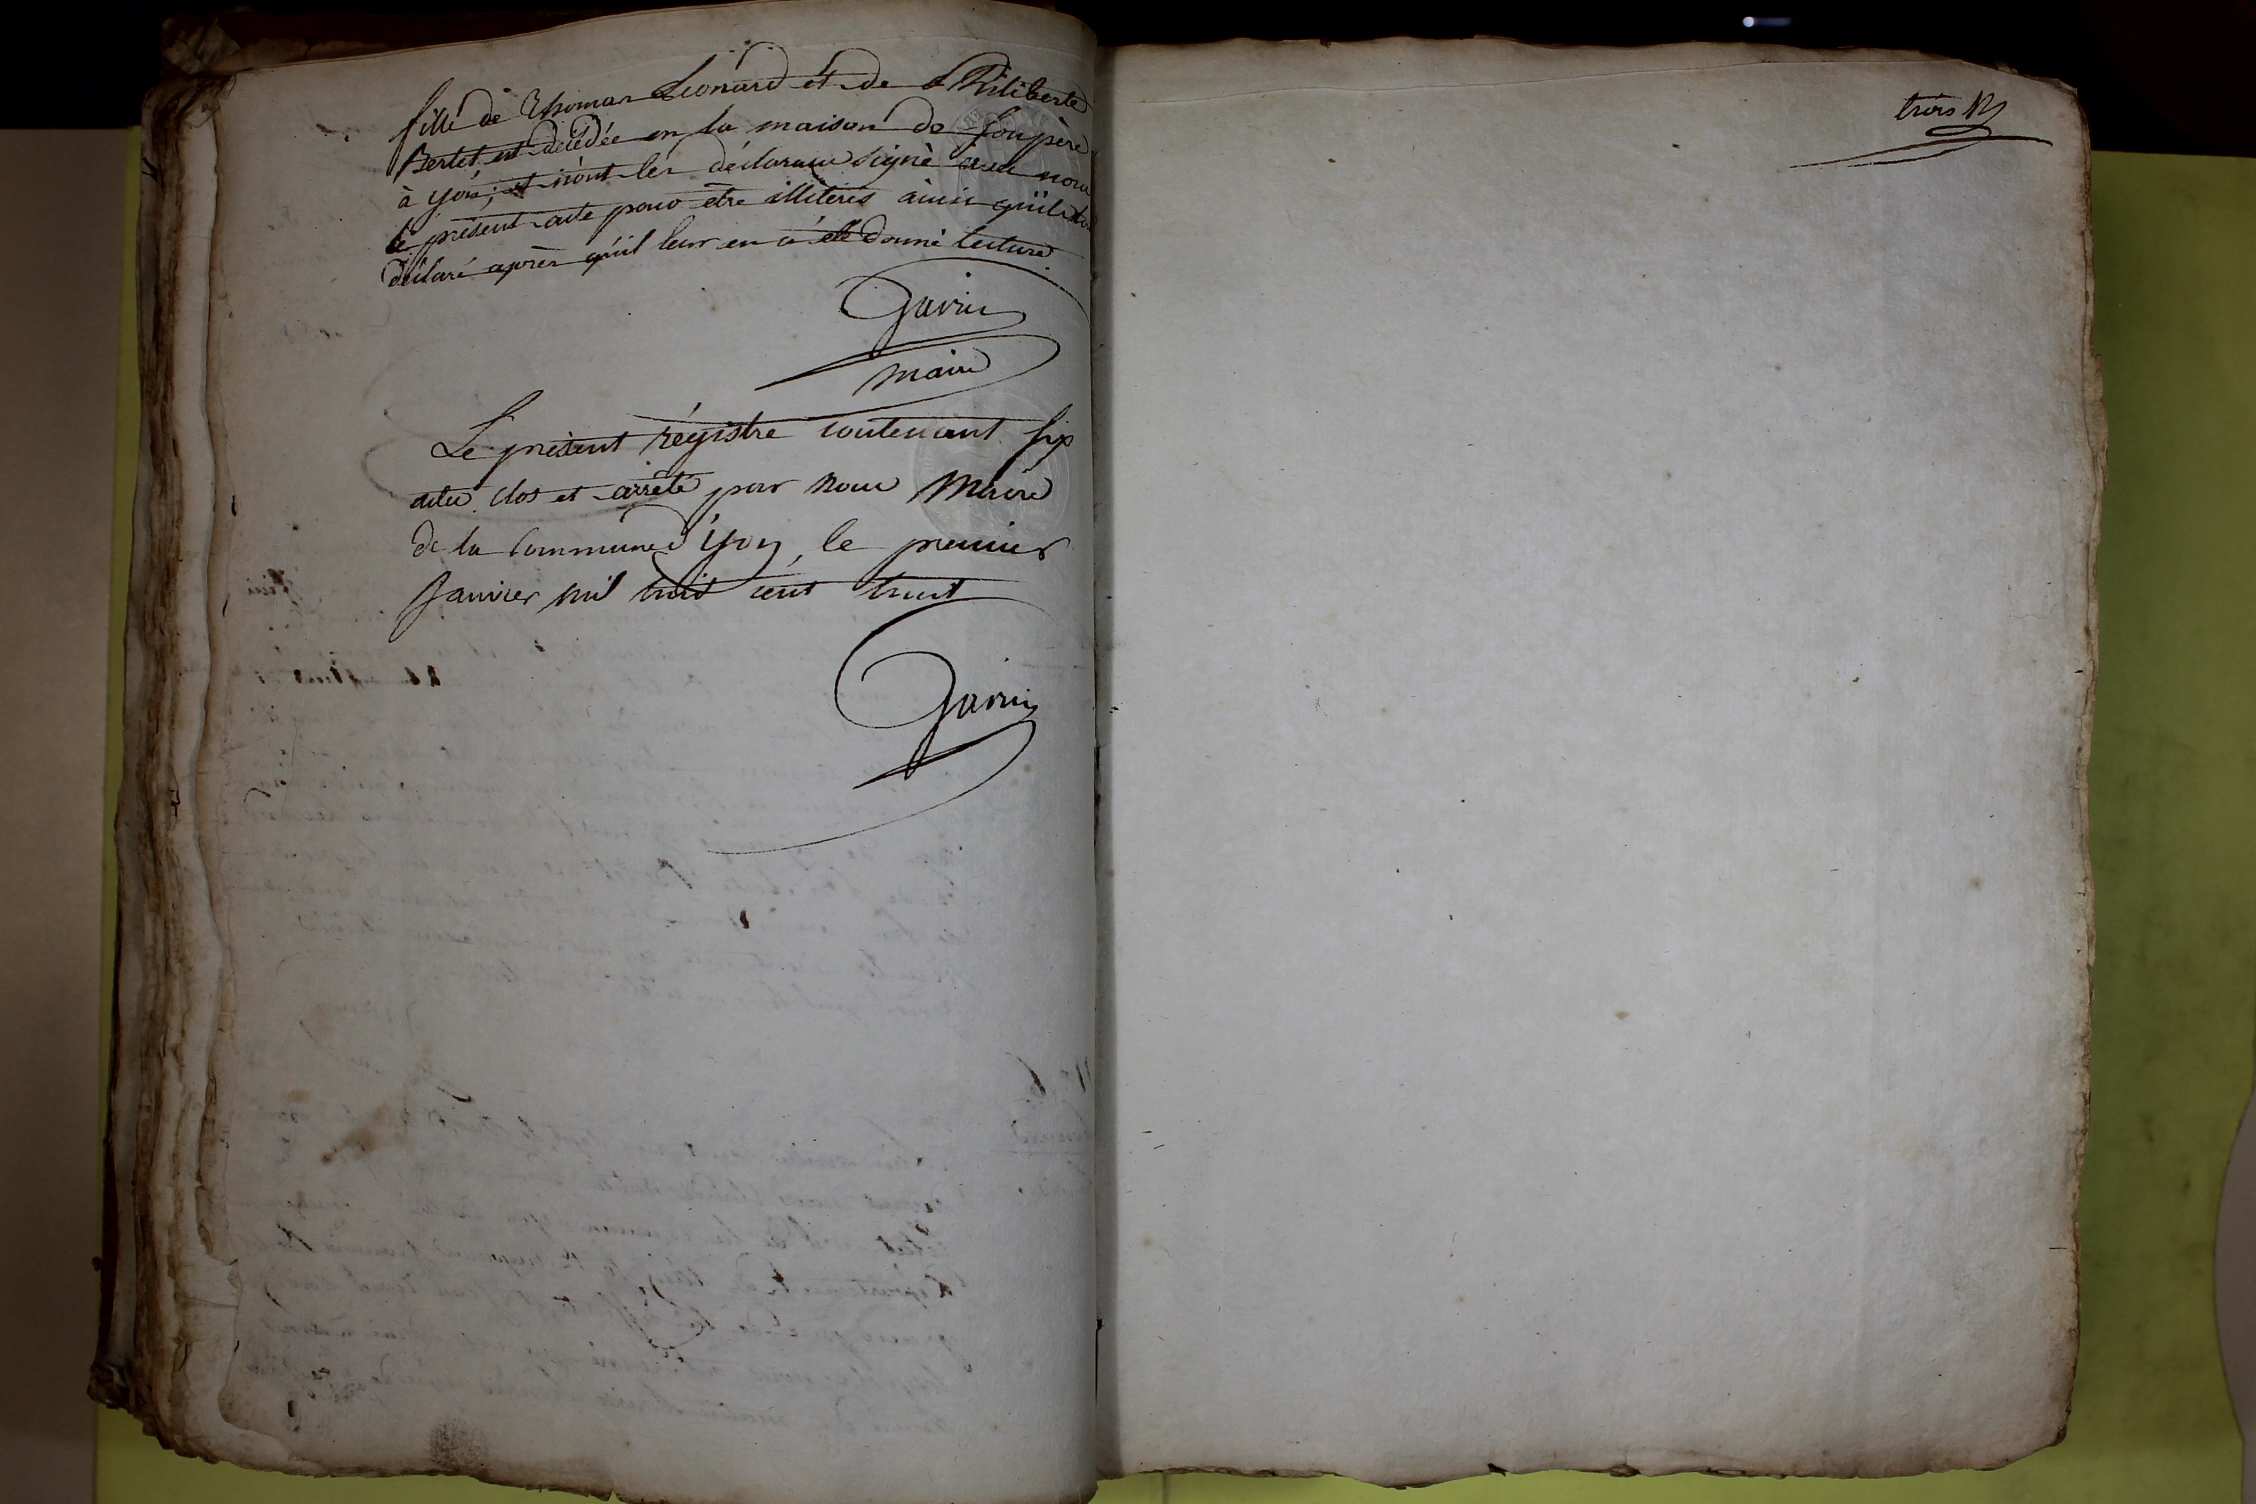 fille de Thomas Léonard et de Philiberte
Bertet est décédée en la maison de son père
à yon; et n'ont les déclarans signé avec nous
le présent acte pour être illiterés ainsi qu'ils l'ont
déclaré après qu'il leur en a été donné lecture.
Gavin
maire
Le présent régistre contenant six
actes clos et arrêté par nous Maire
de la Commune d'yon, le premier
Janvier mil huit cent huit
Gavin
trois